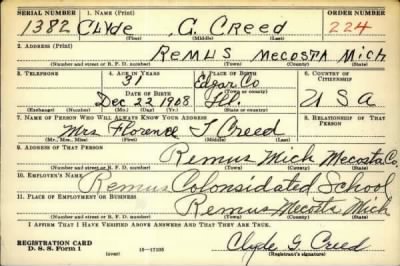 SERIAL NUMBER 1. NAME (Print) ORDER NUMBER
1382 Clyde G. Creed 224
(First) (Middle) (Last)
2. ADDRESS (Print)
Remus Mecosta Mich
(Number and street or R. F. D. number) (Town) (County) (State)
3. TELEPHONE 4. AGE IN YEARS 5. PLACE OF BIRTH 6. COUNTRY OF CITIZENSHIP
31 Edgar Co
DATE OF BIRTH (Town or county)
Dec 22 1908 Ill. U S A
(Exchange) (Number) (Mo.) (Day) (Yr.) (State or country)
7. NAME OF PERSON WHO WILL ALWAYS KNOW YOUR ADDRESS 8. RELATIONSHIP OF THAT PERSON
Mrs Florence J Creed
(Mr., Mrs., Miss) (First) (Middle) (Last)
9. ADDRESS OF THAT PERSON
Remus Mich Mecosta Co.
(Number and street or R. F. D. number) (Town) (County) (State)
10. EMPLOYER'S NAME
Remus Colonsidated School
11. PLACE OF EMPLOYMENT OR BUSINESS
Remus Mecosta Mich
(Number and street or R. F. D. number) (Town) (County) (State)
I AFFIRM THAT I HAVE VERIFIED ABOVE ANSWERS AND THAT THEY ARE TRUE.
REGISTRATION CARD
D. S. S. Form 1 (over) 16-17105 Clyde G. Creed
(Registrant's signature)